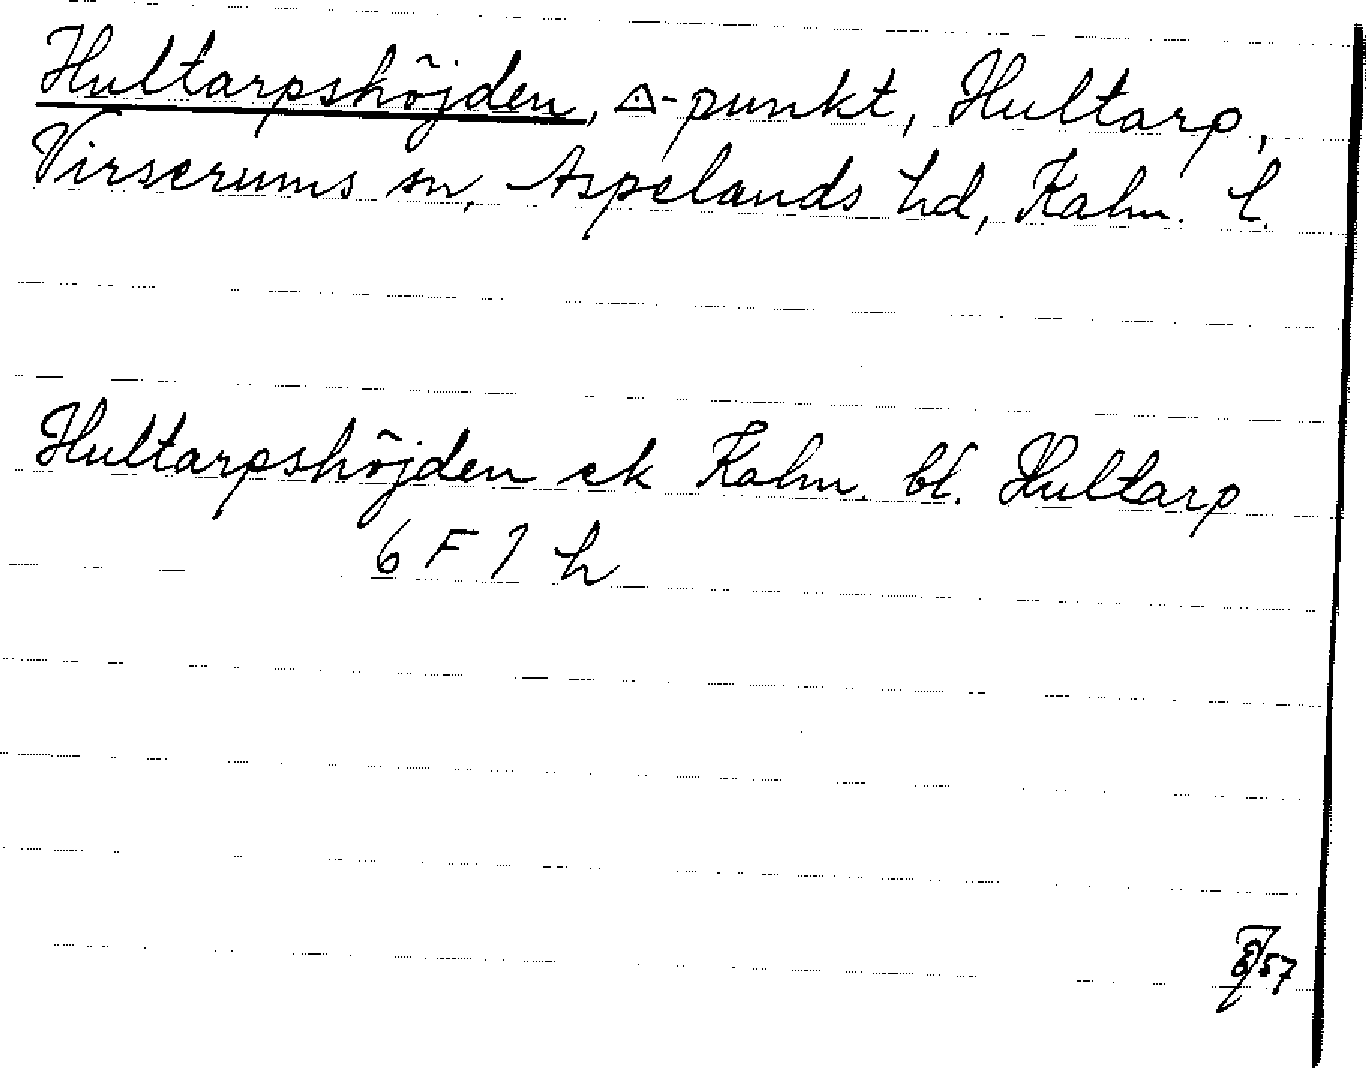 Hultarpshöjden, △-punkt, Hultarp,
Virserums sn, Aspelands hd, Kalm. l.
Hultarpshöjden ek Kalm. bl. Hultarp
6 F 7 h
57